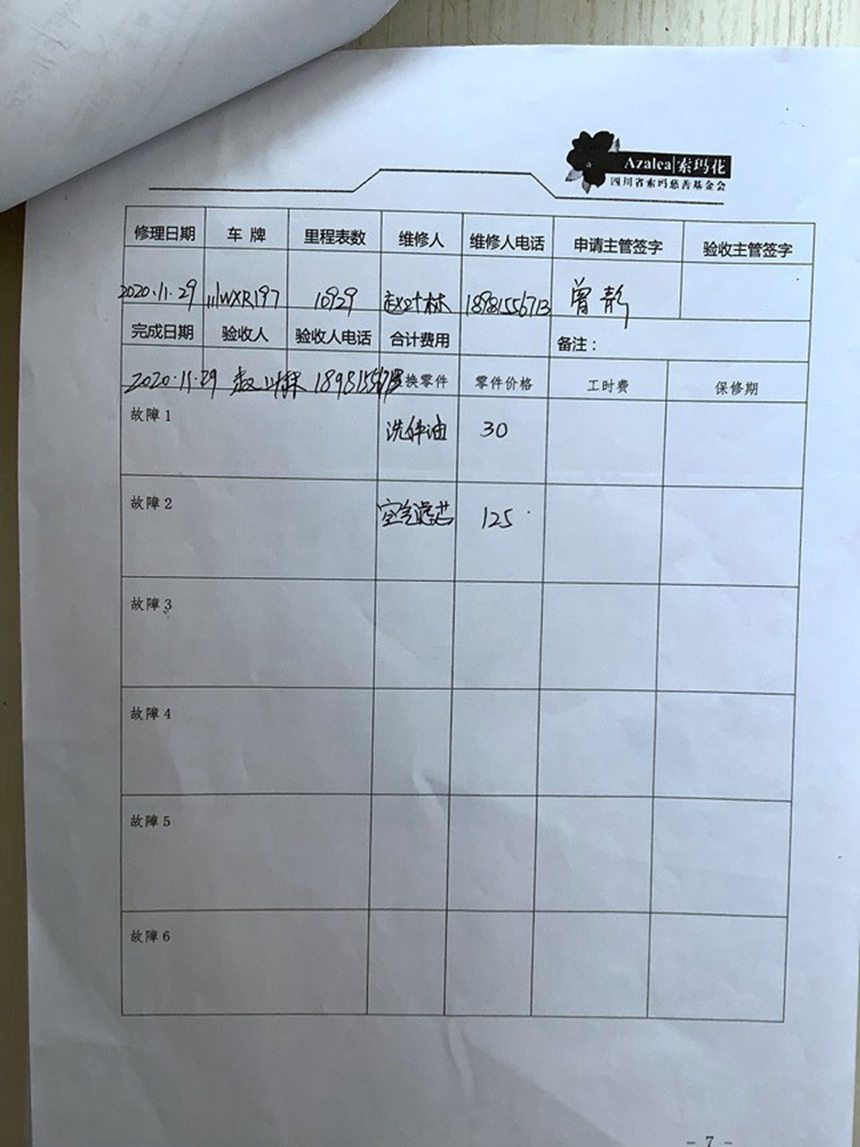 Azalea|索玛花
四川省索玛慈善基金会
修理日期 车 牌 里程表数 维修人 维修人电话 申请主管签字 验收主管签字
2020.11.29 WXR197 10929 赵叶林 18981556713
完成日期 验收人 验收人电话 合计费用 备注：
2020.11.29 换零件 零件价格 工时费 保修期
故障 1 30
故障 2 空气滤芯 125
故障 3
故障 4
故障 5
故障 6
- 7 -